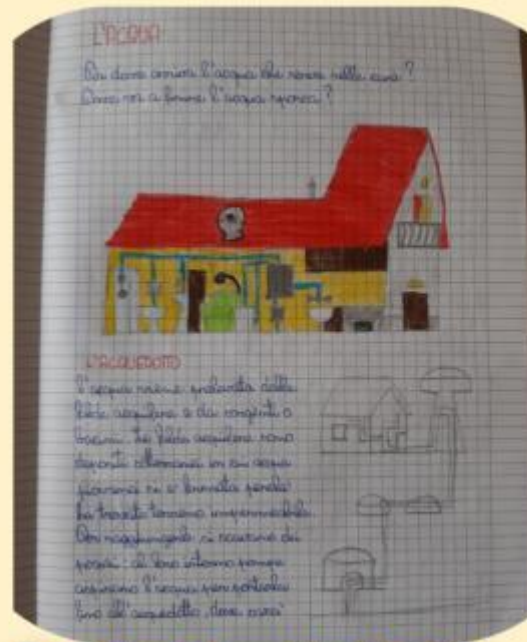 L'ACQUA
Da dove arriva l'acqua che scorre nelle case?
Dove va a finire l'acqua sporca?
L'ACQUEDOTTO
L'acqua viene prelevata dalle
falde acquifere o da sorgenti o
bacini. Le falde acquifere sono
depositi sotterranei in cui acqua
piovana si è fermata perché
ha trovato terreno impermeabile.
Per raggiungerle si scavano dei
pozzi: al loro interno pompe
aspirano l'acqua per portarla
fino all'acquedotto, dove